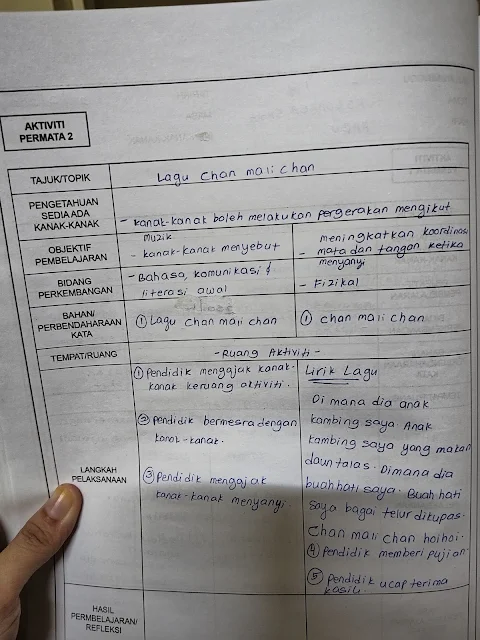 AKTIVITI
PERMATA 2
TAJUK/TOPIK
Lagu Chan mali chan
PENGETAHUAN
SEDIA ADA
KANAK-KANAK
- kanak-kanak boleh melakukan pergerakan mengikut
muzik.
OBJEKTIF
PEMBELAJARAN
- kanak-kanak menyebut
meningkatkan koordinasi
- mata dan tangan ketika
menyanyi
BIDANG
PERKEMBANGAN
- Bahasa, komunikasi &
literasi awal
- Fizikal
BAHAN/
PERBENDAHARAAN
KATA
① Lagu Chan mali chan
① chan mali chan
TEMPAT/RUANG
- Ruang Aktiviti -
LANGKAH
PELAKSANAAN
① Pendidik mengajak kanak-
kanak keruang aktiviti.
② Pendidik bermesra dengan
kanak-kanak.
③ Pendidik mengajak
kanak-kanak menyanyi.
Lirik Lagu
Di mana dia anak
kambing saya. Anak
kambing saya yang makan
daun talas. Dimana dia
buah hati saya. Buah hati
saya bagai telur dikupas.
Chan mali chan hoi hoi.
④ Pendidik memberi pujian
⑤ Pendidik ucap terima
kasih.
HASIL
PERMBELAJARAN/
REFLEKSI